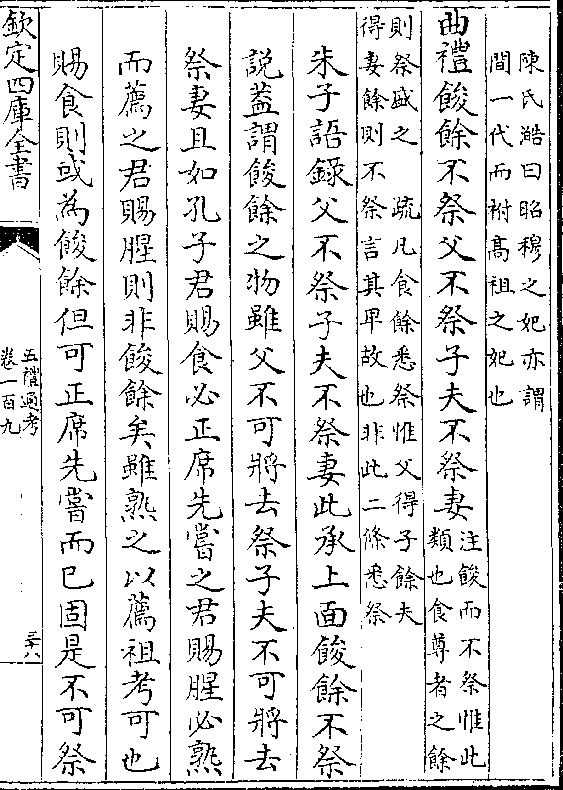 陳氏澔曰昭穆之妃亦謂
間一代而祔髙祖之妃也
曲禮餕餘不祭父不祭子夫不祭妻
注餕而不祭惟此
類也食尊者之餘
則祭盛之　疏凡食餘悉祭惟父得子餘夫
得妻餘則不祭言其卑故也非此二條悉祭
朱子語錄父不祭子夫不祭妻此承上面餕餘不祭
説葢謂餕餘之物雖父不可將去祭子夫不可將去
祭妻且如孔子君賜食必正席先嘗之君賜腥必熟
而薦之君賜腥則非餕餘矣雖熟之以薦祖考可也
賜食則或為餕餘但可正席先嘗而已固是不可祭
欽定四庫全書
五禮通考
卷一百九
三十六